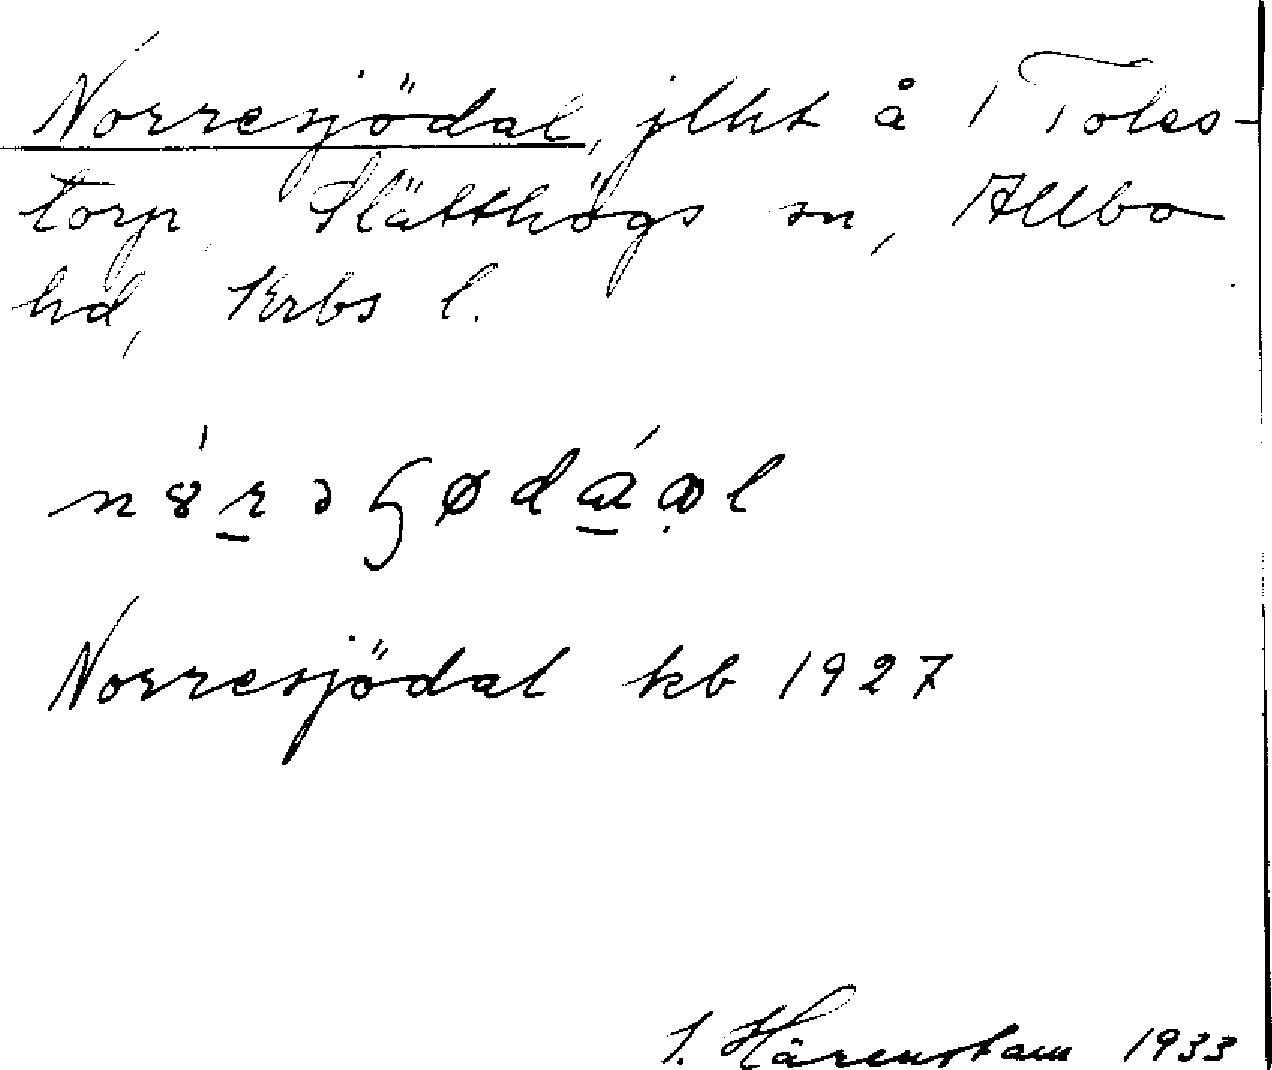 Norresjödal, jlht å 1 Toles-
torp, Slätthögs sn, Allbo
hd, Krbs l.
Norresjödal kb 1927
S. Härenstam 1933